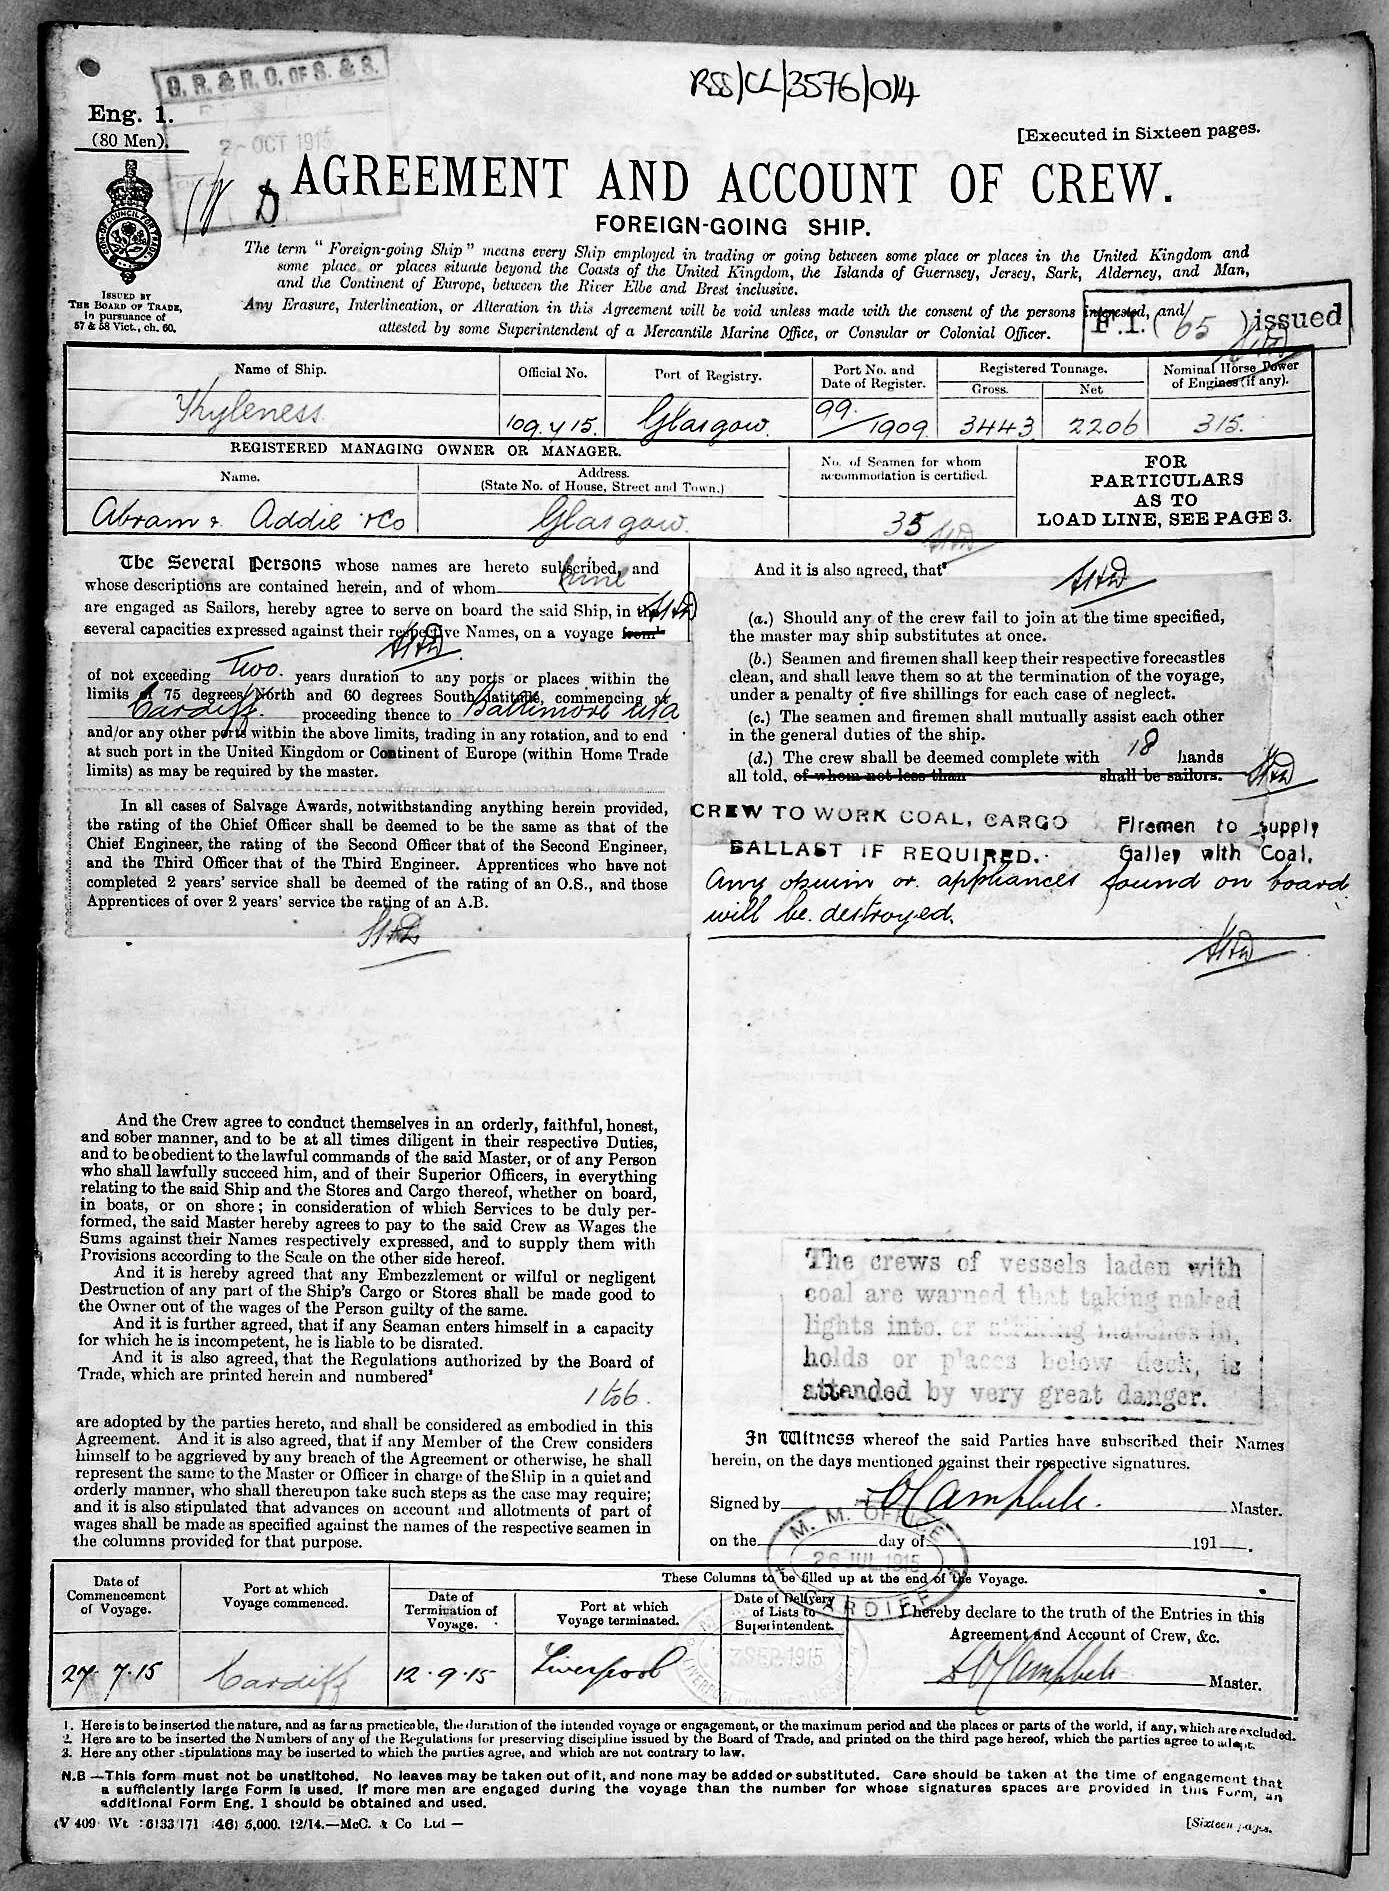 RSS/CL/3576/014
G. R. & R. O. OF S. & S.
OCT 1915
Eng. 1.
(80 Men).
[Executed in Sixteen pages.
AGREEMENT AND ACCOUNT OF CREW.
FOREIGN-GOING SHIP.
ISSUED BY
THE BOARD OF TRADE,
in pursuance of
57 & 58 Vict., ch. 60.
The term "Foreign-going Ship" means every Ship employed in trading or going between some place or places in the United Kingdom and
some place or places situate beyond the Coasts of the United Kingdom, the Islands of Guernsey, Jersey, Sark, Alderney, and Man,
and the Continent of Europe, between the River Elbe and Brest inclusive.
Any Erasure, Interlineation, or Alteration in this Agreement will be void unless made with the consent of the persons interested, and
attested by some Superintendent of a Mercantile Marine Office, or Consular or Colonial Officer.
F.1. (65) issued
Name of Ship.
Official No.
Port of Registry.
Port No. and
Date of Register.
Registered Tonnage.
Gross.
Net
Nominal Horse Power
of Engines (if any).
Kyleness
109.415.
Glasgow.
99/1909
3443
2206
315.
REGISTERED MANAGING OWNER OR MANAGER.
Name.
Address.
(State No. of House, Street and Town.)
No. of Seamen for whom
accommodation is certified.
FOR
PARTICULARS
AS TO
LOAD LINE, SEE PAGE 3.
Abram & Addie & Co
Glasgow.
35
The Several Persons whose names are hereto subscribed, and
whose descriptions are contained herein, and of whom nine
are engaged as Sailors, hereby agree to serve on board the said Ship, in the
several capacities expressed against their respective Names, on a voyage from¹
of not exceeding Two. years duration to any ports or places within the
limits of 75 degrees North and 60 degrees South latitude, commencing at
Cardiff. proceeding thence to Baltimore USA
and/or any other ports within the above limits, trading in any rotation, and to end
at such port in the United Kingdom or Continent of Europe (within Home Trade
limits) as may be required by the master.
In all cases of Salvage Awards, notwithstanding anything herein provided,
the rating of the Chief Officer shall be deemed to be the same as that of the
Chief Engineer, the rating of the Second Officer that of the Second Engineer,
and the Third Officer that of the Third Engineer. Apprentices who have not
completed 2 years' service shall be deemed of the rating of an O.S., and those
Apprentices of over 2 years' service the rating of an A.B.
And the Crew agree to conduct themselves in an orderly, faithful, honest,
and sober manner, and to be at all times diligent in their respective Duties,
and to be obedient to the lawful commands of the said Master, or of any Person
who shall lawfully succeed him, and of their Superior Officers, in everything
relating to the said Ship and the Stores and Cargo thereof, whether on board,
in boats, or on shore; in consideration of which Services to be duly per-
formed, the said Master hereby agrees to pay to the said Crew as Wages the
Sums against their Names respectively expressed, and to supply them with
Provisions according to the Scale on the other side hereof.
And it is hereby agreed that any Embezzlement or wilful or negligent
Destruction of any part of the Ship's Cargo or Stores shall be made good to
the Owner out of the wages of the Person guilty of the same.
And it is further agreed, that if any Seaman enters himself in a capacity
for which he is incompetent, he is liable to be disrated.
And it is also agreed, that the Regulations authorized by the Board of
Trade, which are printed herein and numbered²
1 to 6.
are adopted by the parties hereto, and shall be considered as embodied in this
Agreement. And it is also agreed, that if any Member of the Crew considers
himself to be aggrieved by any breach of the Agreement or otherwise, he shall
represent the same to the Master or Officer in charge of the Ship in a quiet and
orderly manner, who shall thereupon take such steps as the case may require;
and it is also stipulated that advances on account and allotments of part of
wages shall be made as specified against the names of the respective seamen in
the columns provided for that purpose.
And it is also agreed, that³
(a.) Should any of the crew fail to join at the time specified,
the master may ship substitutes at once.
(b.) Seamen and firemen shall keep their respective forecastles
clean, and shall leave them so at the termination of the voyage,
under a penalty of five shillings for each case of neglect.
(c.) The seamen and firemen shall mutually assist each other
in the general duties of the ship.
(d.) The crew shall be deemed complete with 18 hands
all told, of whom not less than shall be sailors.
CREW TO WORK COAL, CARGO
BALLAST IF REQUIRED.
Firemen to supply
Galley with Coal.
Any opium or appliances found on board
will be destroyed.
The crews of vessels laden with
coal are warned that taking naked
lights into, or striking matches in,
holds or places below deck, is
attended by very great danger.
In Witness whereof the said Parties have subscribed their Names
herein, on the days mentioned against their respective signatures.
Signed by Campbell. Master.
on the day of 191 .
M. M. OFFICE
26 JUL 1915
CARDIFF
Date of
Commencement
of Voyage.
Port at which
Voyage commenced.
These Columns to be filled up at the end of the Voyage.
Date of
Termination of
Voyage.
Port at which
Voyage terminated.
Date of Delivery
of Lists to
Superintendent.
I hereby declare to the truth of the Entries in this
Agreement and Account of Crew, &c.
27. 7. 15
Cardiff
12. 9. 15
Liverpool
SEP 1915
Campbell Master.
1. Here is to be inserted the nature, and as far as practicable, the duration of the intended voyage or engagement, or the maximum period and the places or parts of the world, if any, which are excluded.
2. Here are to be inserted the Numbers of any of the Regulations for preserving discipline issued by the Board of Trade, and printed on the third page hereof, which the parties agree to adopt.
3. Here any other stipulations may be inserted to which the parties agree, and which are not contrary to law.
N.B—This form must not be unstitched. No leaves may be taken out of it, and none may be added or substituted. Care should be taken at the time of engagement that
a sufficiently large Form is used. If more men are engaged during the voyage than the number for whose signatures spaces are provided in this Form, an
additional Form Eng. 1 should be obtained and used.
(V 409 Wt 6133/171 (46) 5,000. 12/14.—McC. & Co Ltd—
[Sixteen pages.